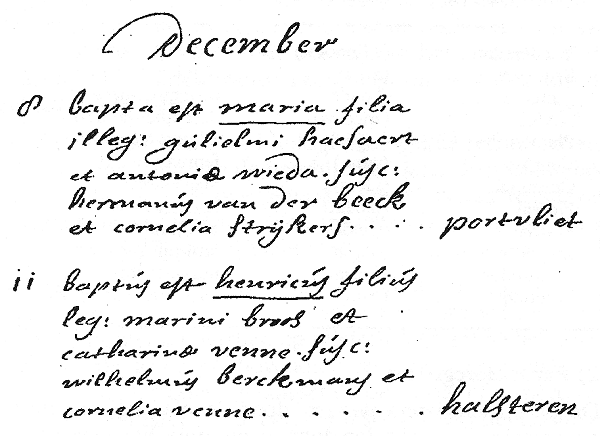 December
8 bapta est maria filia
illeg: gulielmi haesaert
et antoniæ wieda. susc:
hermanús van der beeck
et cornelia strijkers. . . . portvliet
ii baptús est henricús filiús
leg: marini broos et
catharinæ venne. susc:
wilhelmús berckmans et
cornelia venne. . . . . . halsteren